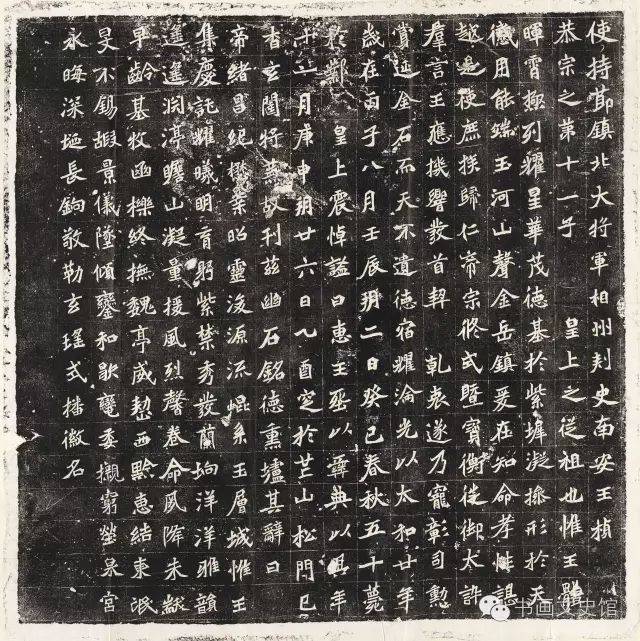 使持節鎮北大將軍相州刺史南安王楨
恭宗之第十一子　皇上之從祖也惟王體
暉霄極列耀星華茂德基於紫墀凝操形於天
儀用能端玉河山聲金岳鎮爰在知命孝性諶
越是使庶族歸仁帝宗攸式暨寶衡徙御太訐
羣言王應機響發首契　乾衷遂乃寵彰司勳
賞延金石而天不遺德宿耀淪光以太和廿年
歲在丙子八月壬辰朔二日癸巳春秋五十薨
於鄴　皇上震悼謚曰惠王葬以彝典以其年
十一月庚申朔廿六日乙酉窆於芒山松門巳
杳玄闥將蕪故刊茲幽石銘德熏壚其辭曰
帝緒昌紀懋業昭靈浚源流崐系玉層城惟王
集慶託耀曦明育躬紫禁秀發蘭坰洋洋雅韻
遙遙淵渟瞻山凝量援風烈馨卷命夙降未黻
早齡基牧幽櫟終撫魏亭威慭西黔惠結東氓
旻不錫嘏景儀墜傾鑾和歇轊委櫬窮塋泉宮
永晦深埏長扃敬勒玄瑤式播徽名
书画文史馆